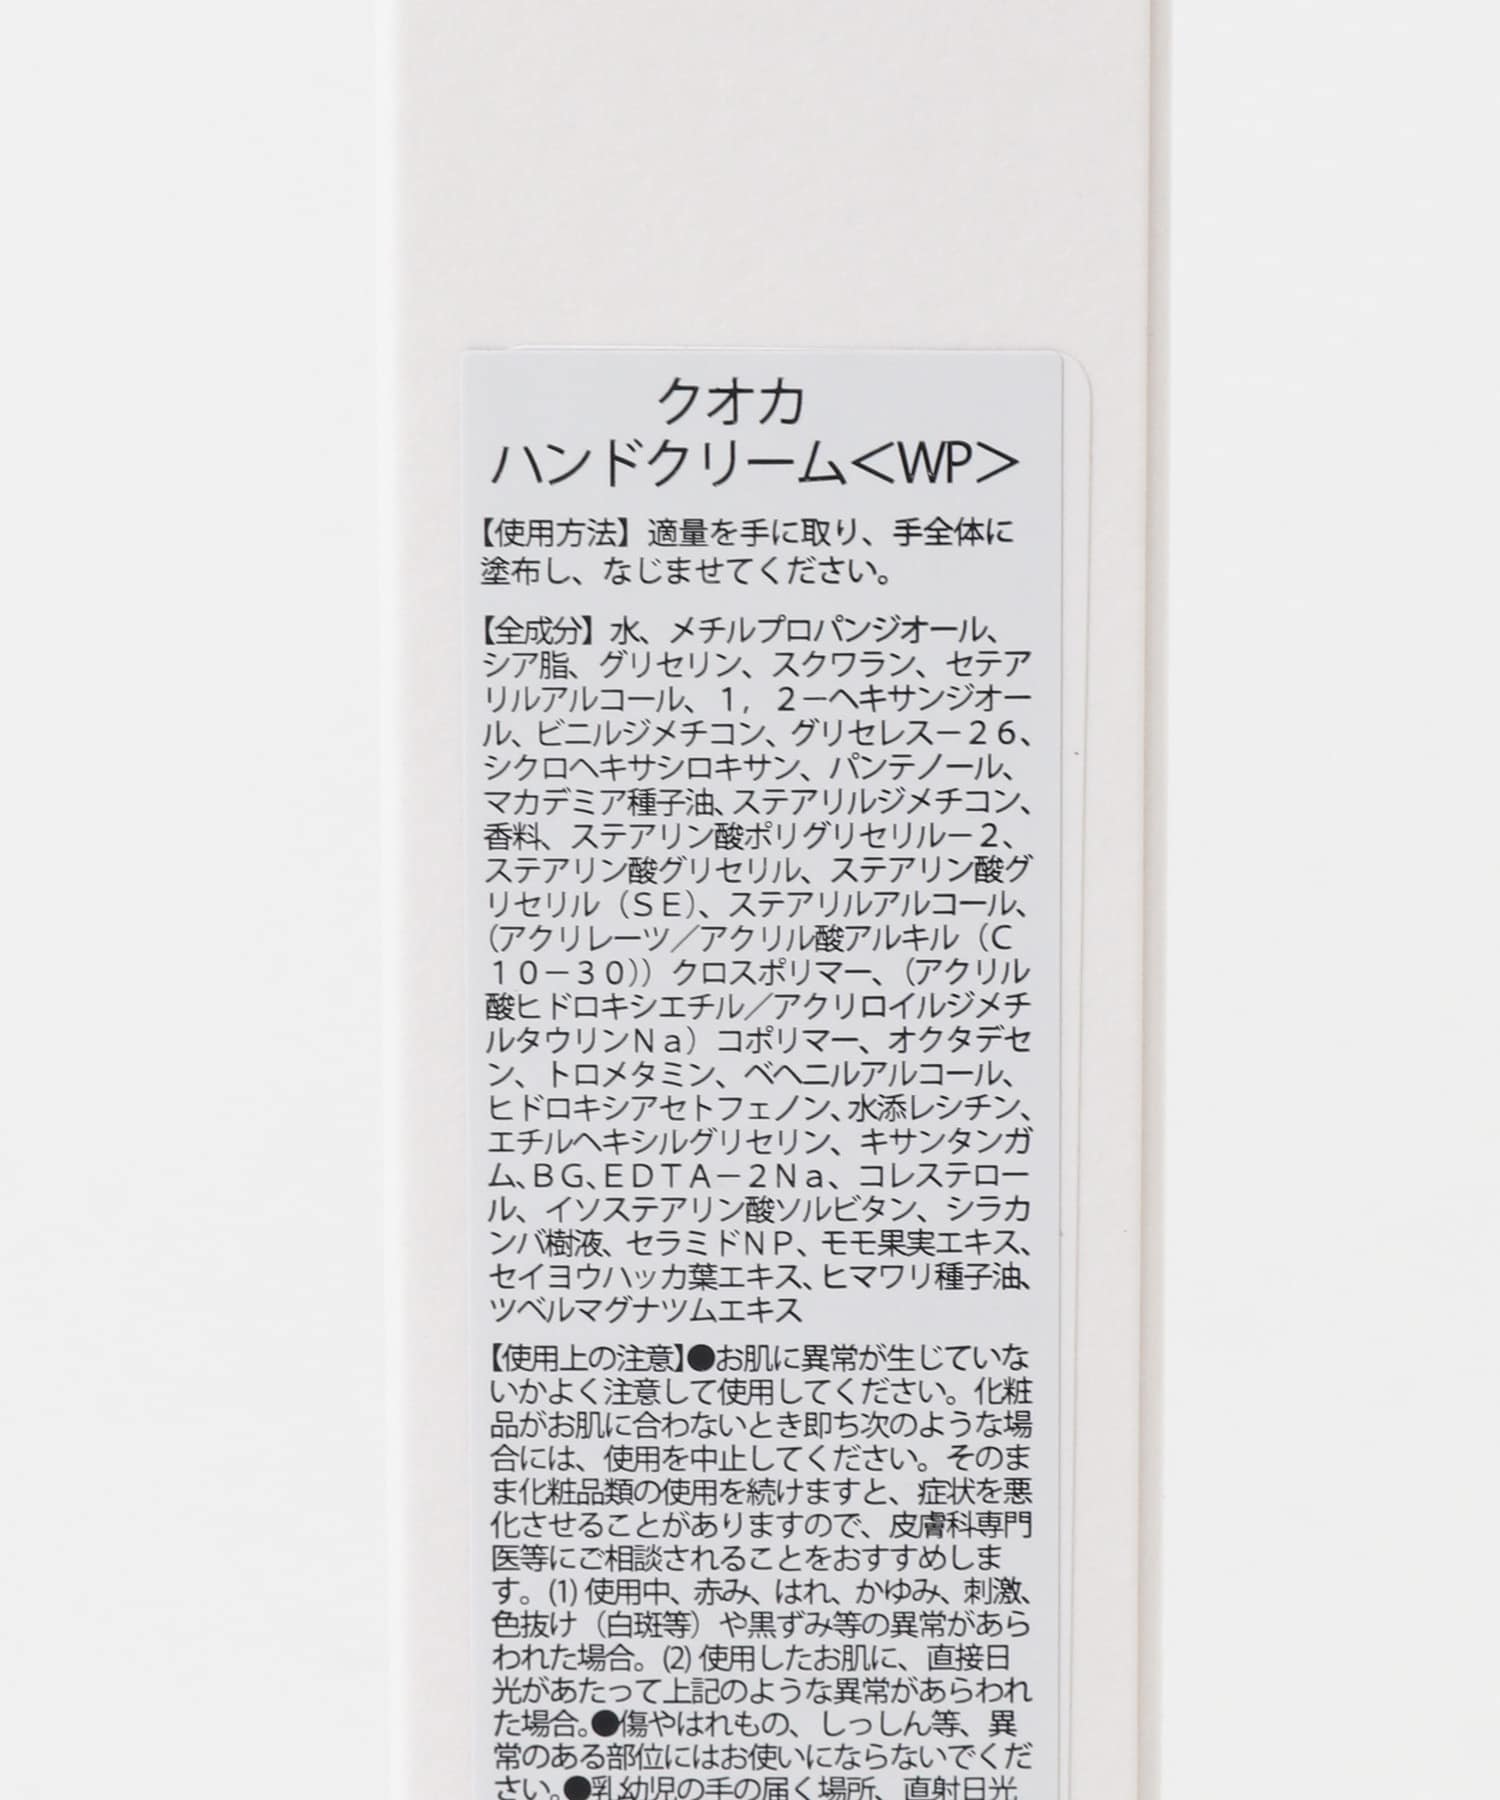 クオカ
ハンドクリーム＜WP＞
【使用方法】適量を手に取り、手全体に
塗布し、なじませてください。
【全成分】水、メチルプロパンジオール、
シア脂、グリセリン、スクワラン、セテア
リルアルコール、１，２－ヘキサンジオー
ル、ビニルジメチコン、グリセレス－２６、
シクロヘキサシロキサン、パンテノール、
マカデミア種子油、ステアリルジメチコン、
香料、ステアリン酸ポリグリセリル－２、
ステアリン酸グリセリル、ステアリン酸グ
リセリル（ＳＥ）、ステアリルアルコール、
（アクリレーツ／アクリル酸アルキル（Ｃ
１０－３０））クロスポリマー、（アクリル
酸ヒドロキシエチル／アクリロイルジメチ
ルタウリンＮａ）コポリマー、オクタデセ
ン、トロメタミン、ベヘニルアルコール、
ヒドロキシアセトフェノン、水添レシチン、
エチルヘキシルグリセリン、キサンタンガ
ム、ＢＧ、ＥＤＴＡ－２Ｎａ、コレステロー
ル、イソステアリン酸ソルビタン、シラカ
ンバ樹液、セラミドＮＰ、モモ果実エキス、
セイヨウハッカ葉エキス、ヒマワリ種子油、
ツベルマグナツムエキス
【使用上の注意】●お肌に異常が生じていな
いかよく注意して使用してください。化粧
品がお肌に合わないとき即ち次のような場
合には、使用を中止してください。そのま
ま化粧品類の使用を続けますと、症状を悪
化させることがありますので、皮膚科専門
医等にご相談されることをおすすめしま
す。(1) 使用中、赤み、はれ、かゆみ、刺激、
色抜け（白斑等）や黒ずみ等の異常があら
われた場合。(2) 使用したお肌に、直接日
光があたって上記のような異常があらわれ
た場合。●傷やはれもの、しっしん等、異
常のある部位にはお使いにならないでくだ
さい。●乳幼児の手の届く場所、直射日光